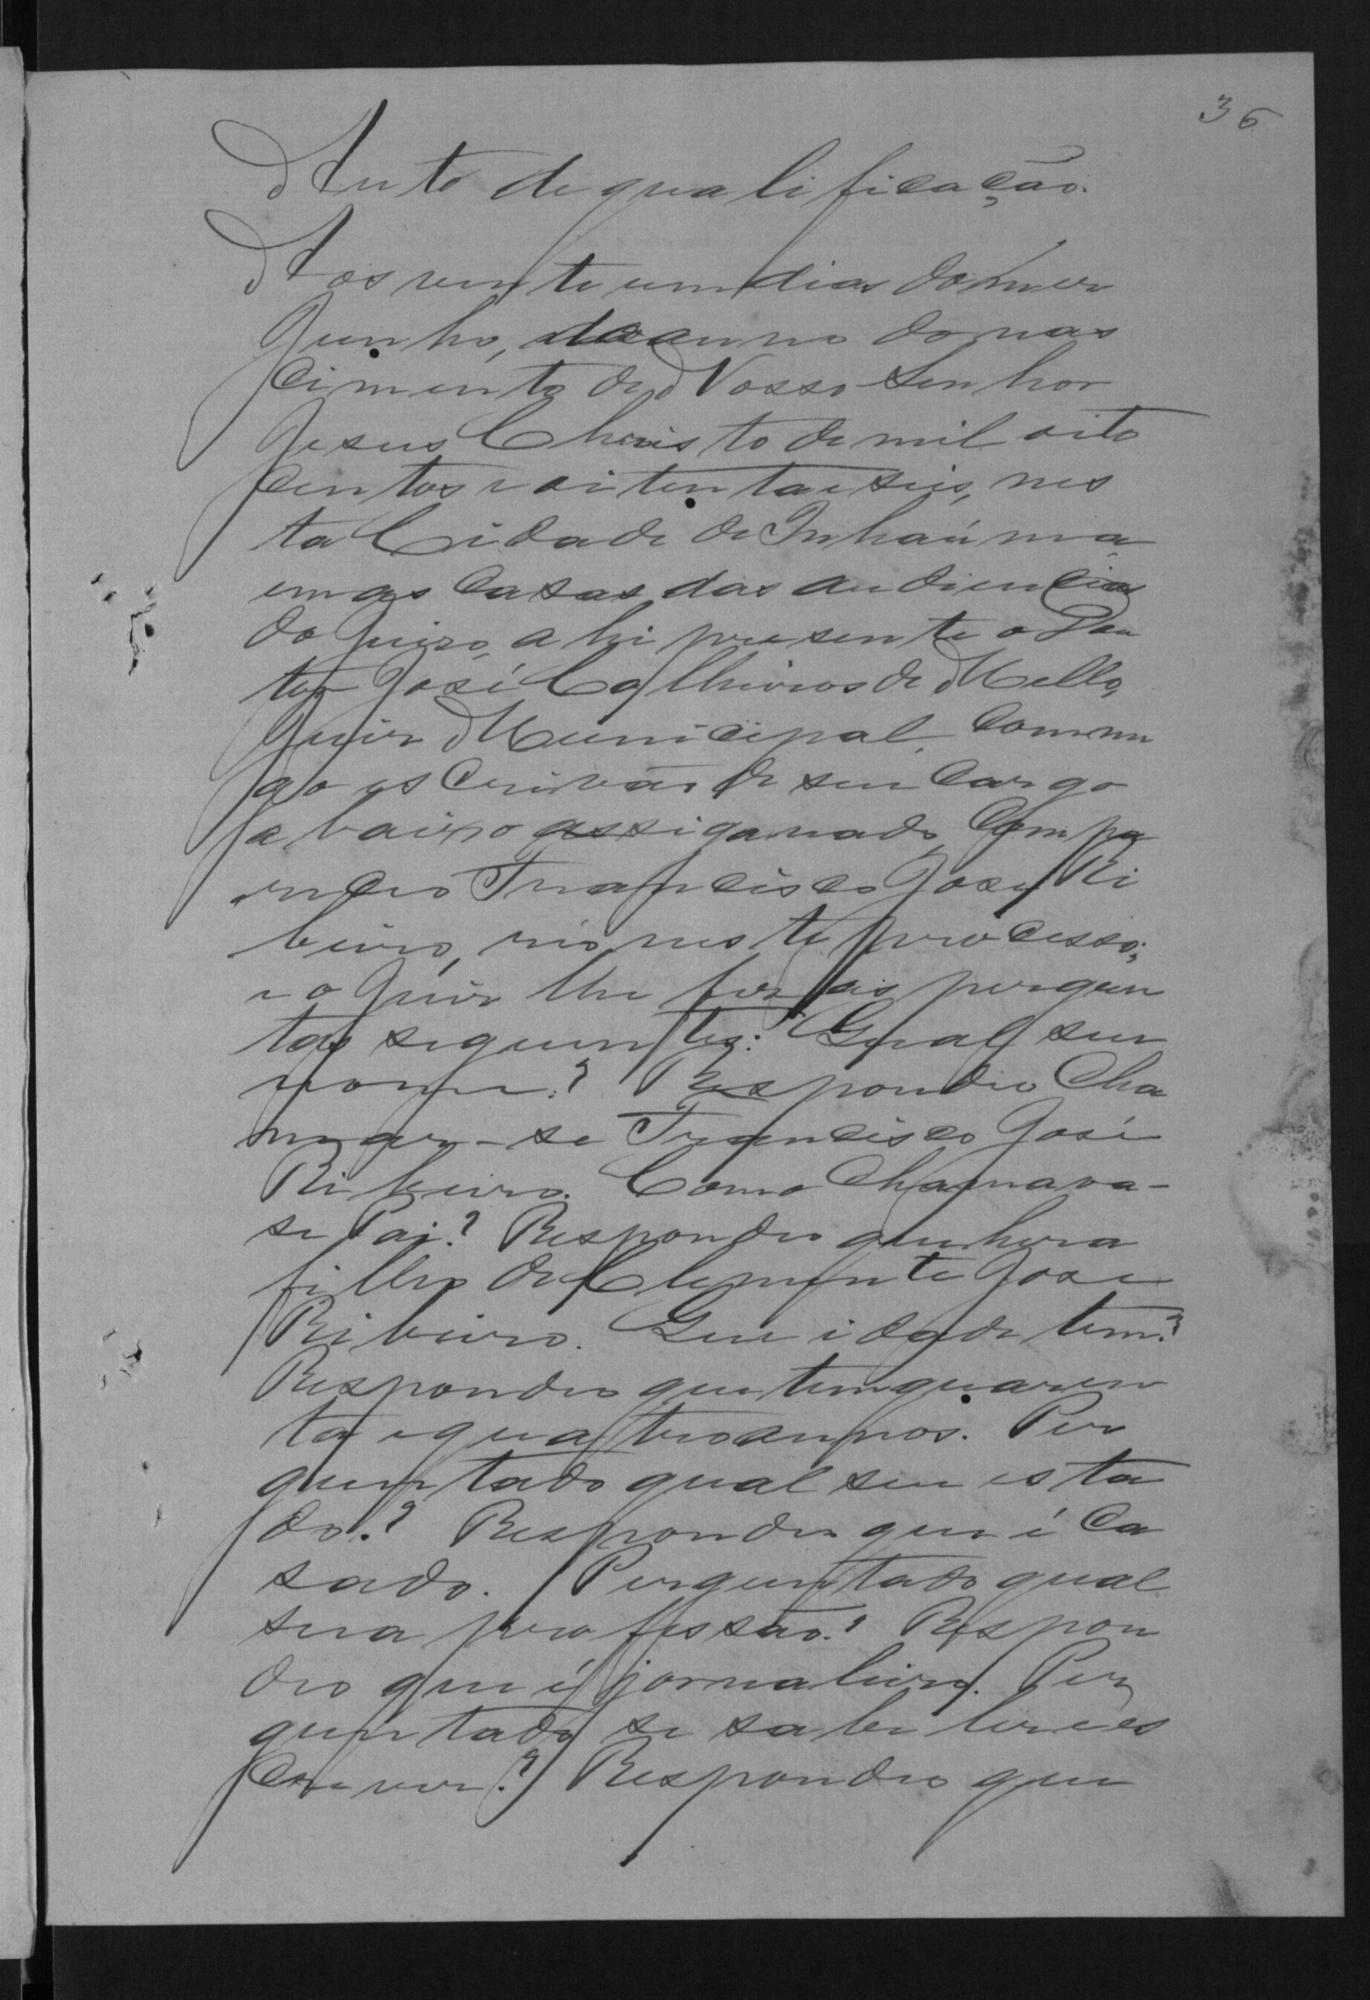 36
Auto de qualificação.
Aos vinte um dias do mez
Junho, do anno do nas
cimento de Nosso Senhor
Jesus Christo de mil oito
centos e oitenta e seis, nes
ta Cidade de Inhaúma
em as casas das audiencias
do Juizo, ahi presente o Dou
tor José Calheiros de Mello,
Juiz Municipal, commi
go escrivão de seu cargo
abaixo assignado, compa
receo Francisco José Ri
beiro, réo neste processo;
e o Juiz lhe fez as pergun
tas seguintes: Qual seu
nome? Respondeo cha
mar-se Francisco José
Ribeiro. Como chamava-
se Pai? Respondeo que hera
filho de Clemente José
Ribeiro. Que idade tem?
Respondeo que tem quaren
ta e quatro annos. Per
guntado qual seu esta
do? Respondeo que é ca
sado. Perguntado qual
sua profissão? Respon
deo que é jornaleiro. Per
guntado se sabe ler e es
crever? Respondeo que